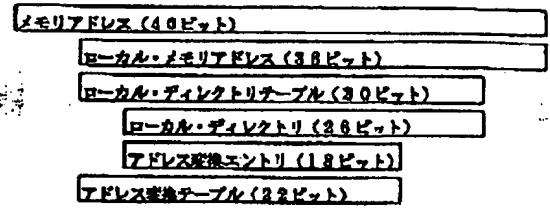 メモリアドレス (40ビット)
ローカル・メモリアドレス (36ビット)
ローカル・ディレクトリテーブル (30ビット)
ローカル・ディレクトリ (26ビット)
アドレス変換エントリ (18ビット)
アドレス変換テーブル (22ビット)